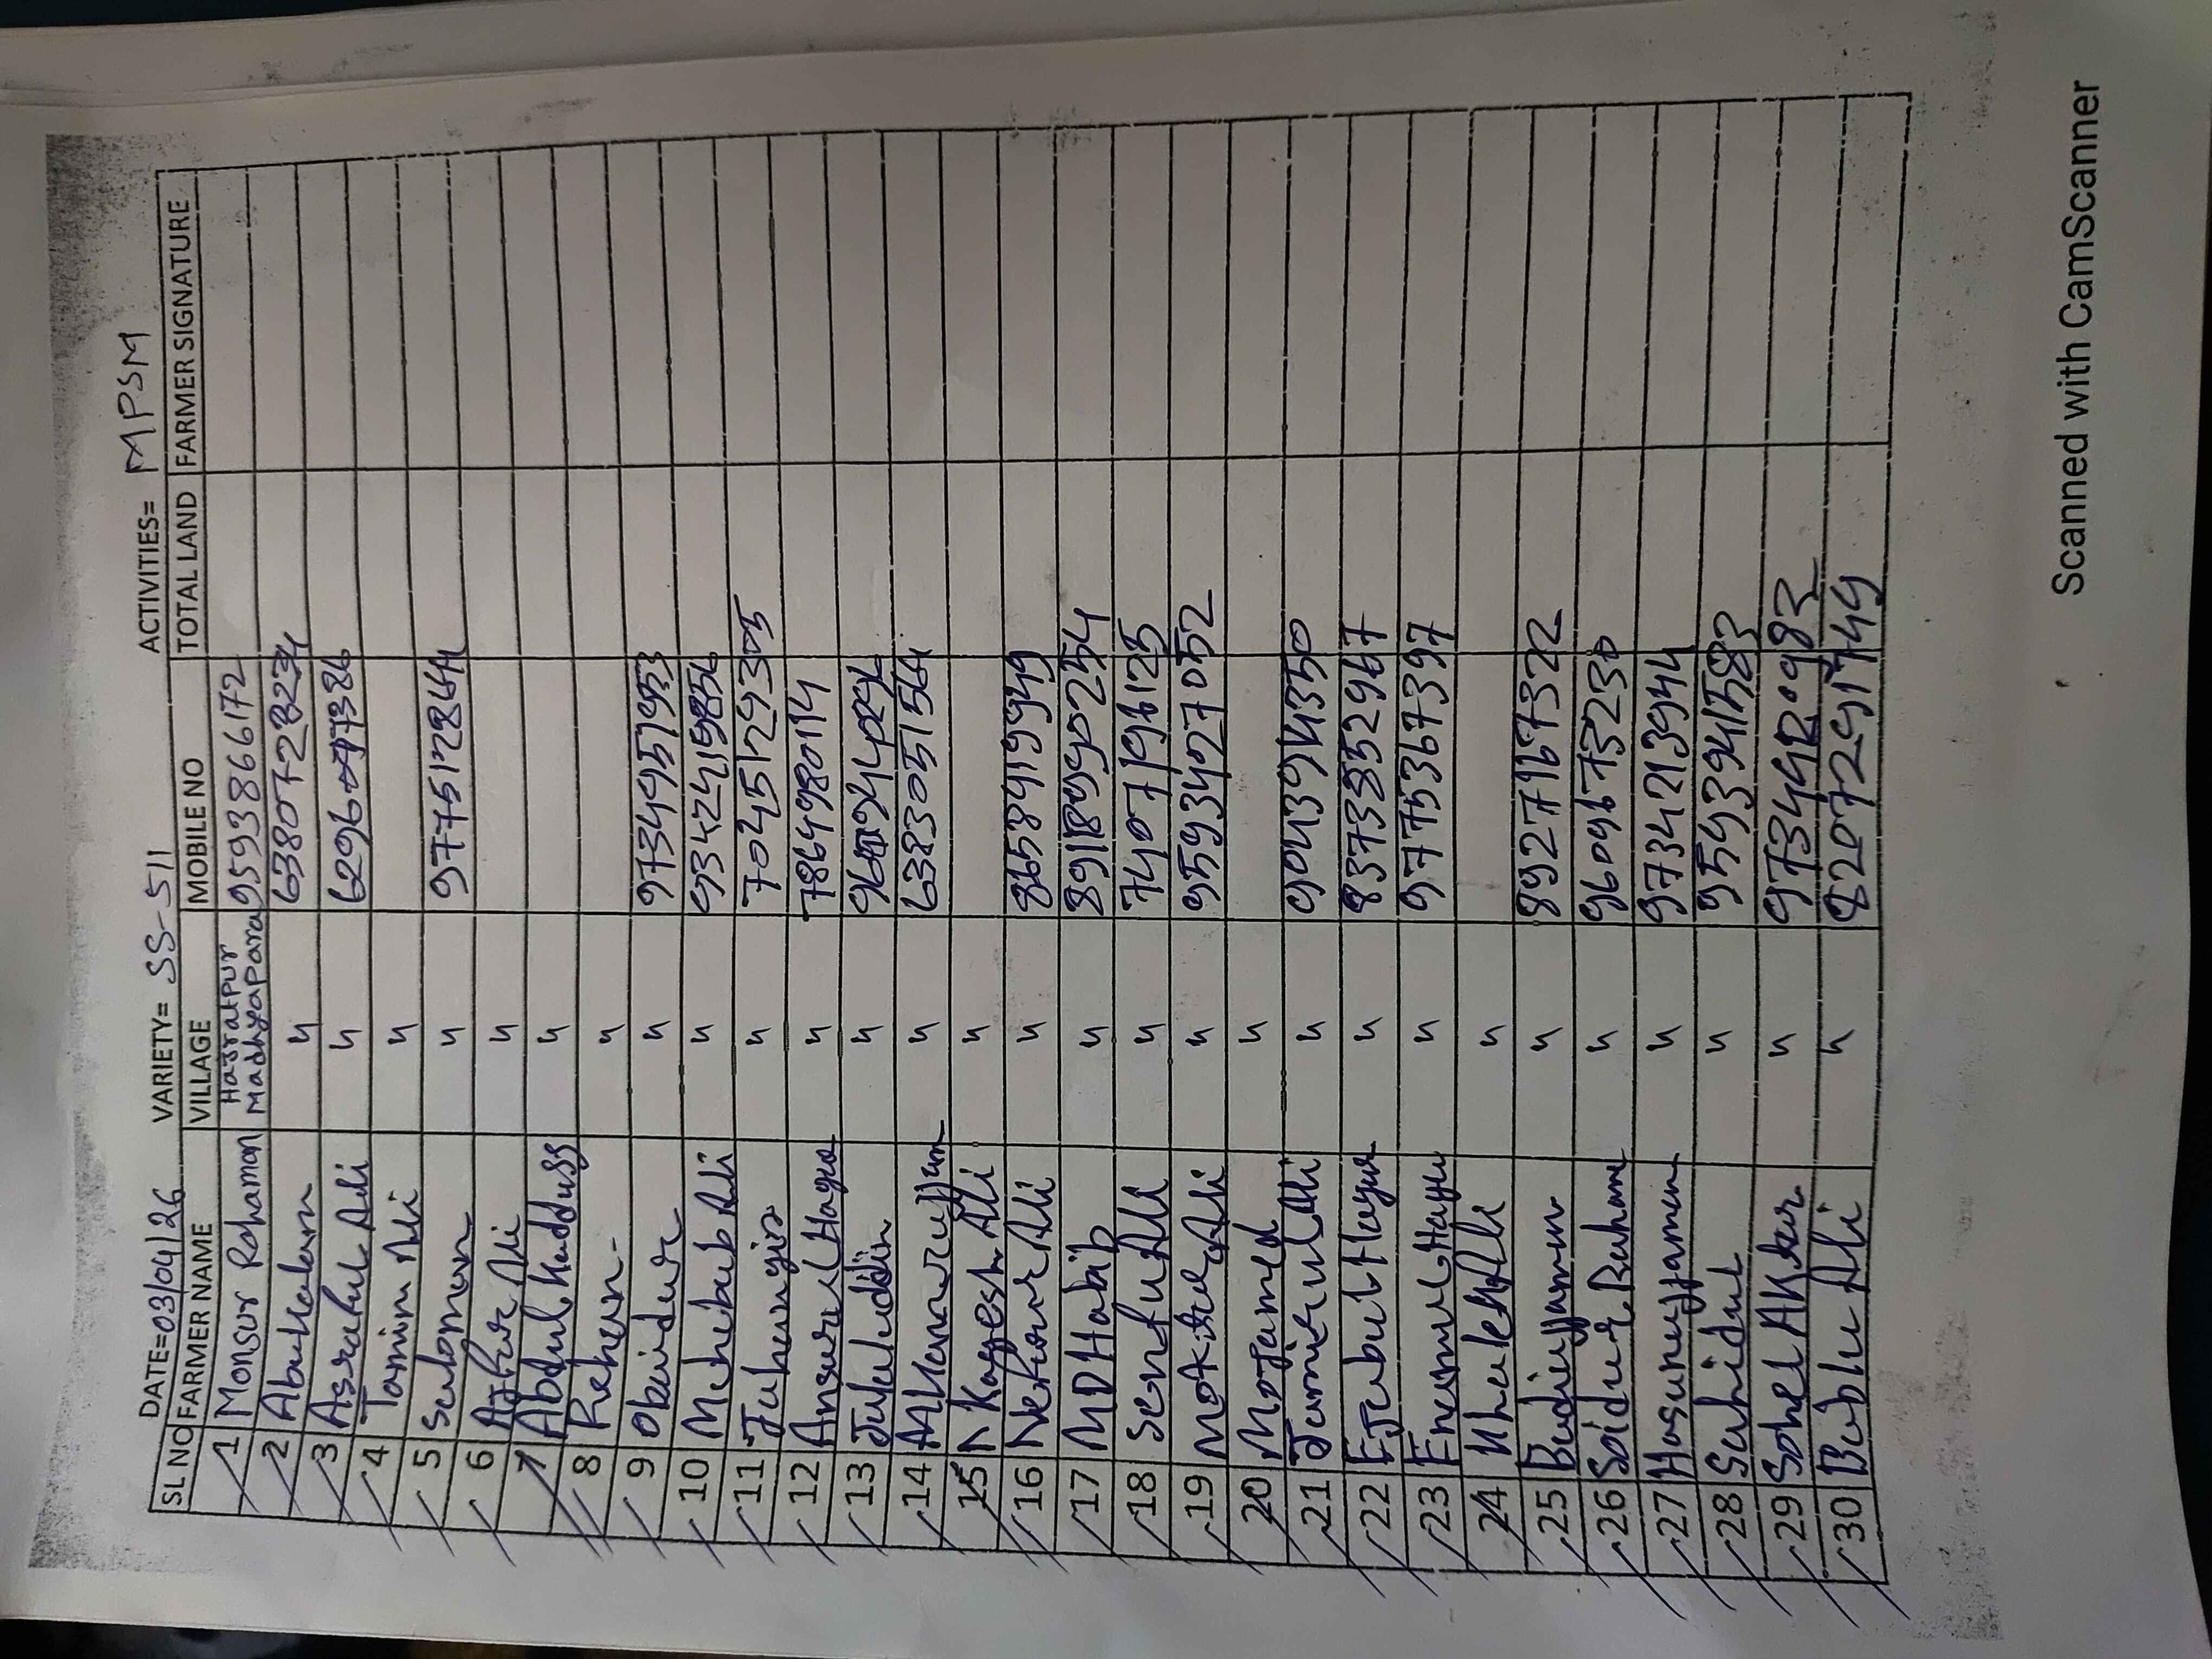 DATE=03/04/26 VARIETY= SS-511 ACTIVITIES= MPSM
SL NO FARMER NAME VILLAGE MOBILE NO TOTAL LAND FARMER SIGNATURE
1 Monsur Rohaman Hazratpur Madhyapara 9593866172
2 Abukalam " 6380728234
3 Asraful Ali " 6296
4 Tamim Ali "
5 Sulomon " 9775128644
6 Azfur Ali "
7 Abdul Kadduss "
8 Rehun "
9 Obaidur " 9734951953
10 Mehebub Ali " 9342419856
11 Jahangir " 7045129305
12 Ansarul Haque " 7864980114
13 Jalaluddin "
14 " 6383051564
15 Kayesh Ali "
16 Ali " 8658419949
17 MD Habib " 8918090254
18 Ali " 7407196125
19 Ali " 9593427052
20 Mojamel "
21 Jamirul Ali " 9043914350
22 Ejabul Haque " 8373852967
23 Enamul Haque " 9775367397
24 Khalek Ali "
25 Badiujjaman " 8927167322
26 Saidur Rahaman " 9609673230
27 Hasanujjaman " 9734213944
28 Sahidul "
29 Sohel Aktar "
30 Bablu Ali "
Scanned with CamScanner